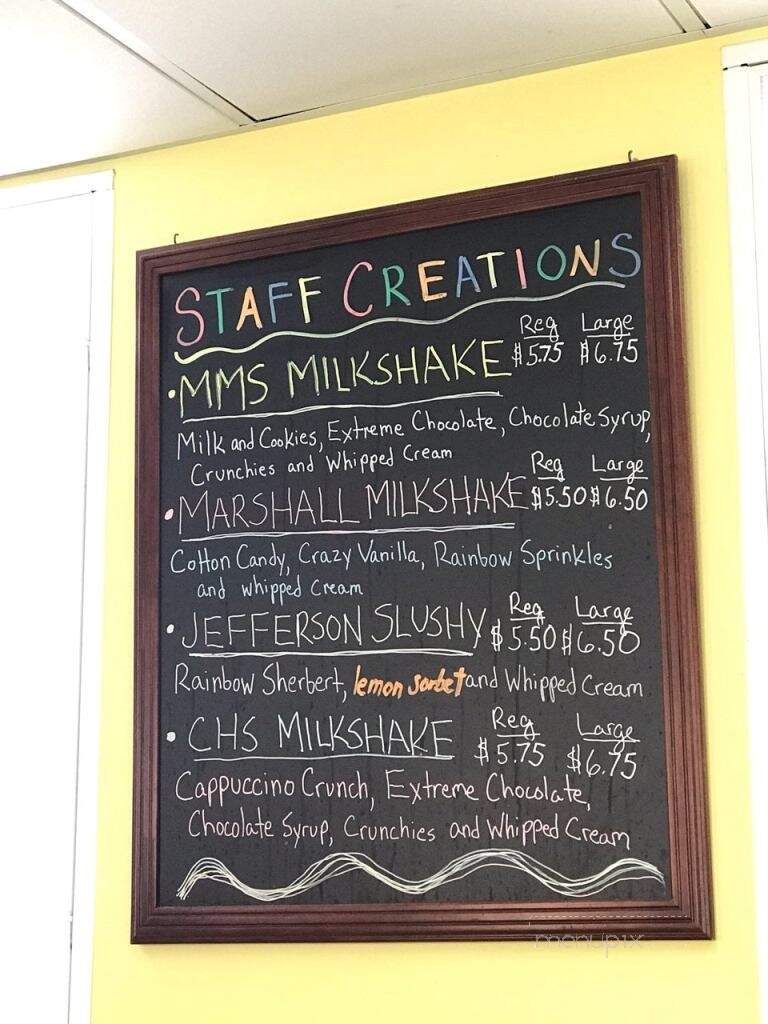 STAFF CREATIONS
Reg Large
• MMS MILKSHAKE $5.75 $6.75
Milk and Cookies, Extreme Chocolate, Chocolate Syrup,
Crunchies and Whipped Cream
Reg Large
• MARSHALL MILKSHAKE $5.50 $6.50
Cotton Candy, Crazy Vanilla, Rainbow Sprinkles
and whipped Cream
Reg Large
• JEFFERSON SLUSHY $5.50 $6.50
Rainbow Sherbert, lemon sorbet and Whipped Cream
Reg Large
• CHS MILKSHAKE $5.75 $6.75
Cappuccino Crunch, Extreme Chocolate,
Chocolate Syrup, Crunchies and Whipped Cream
menupix